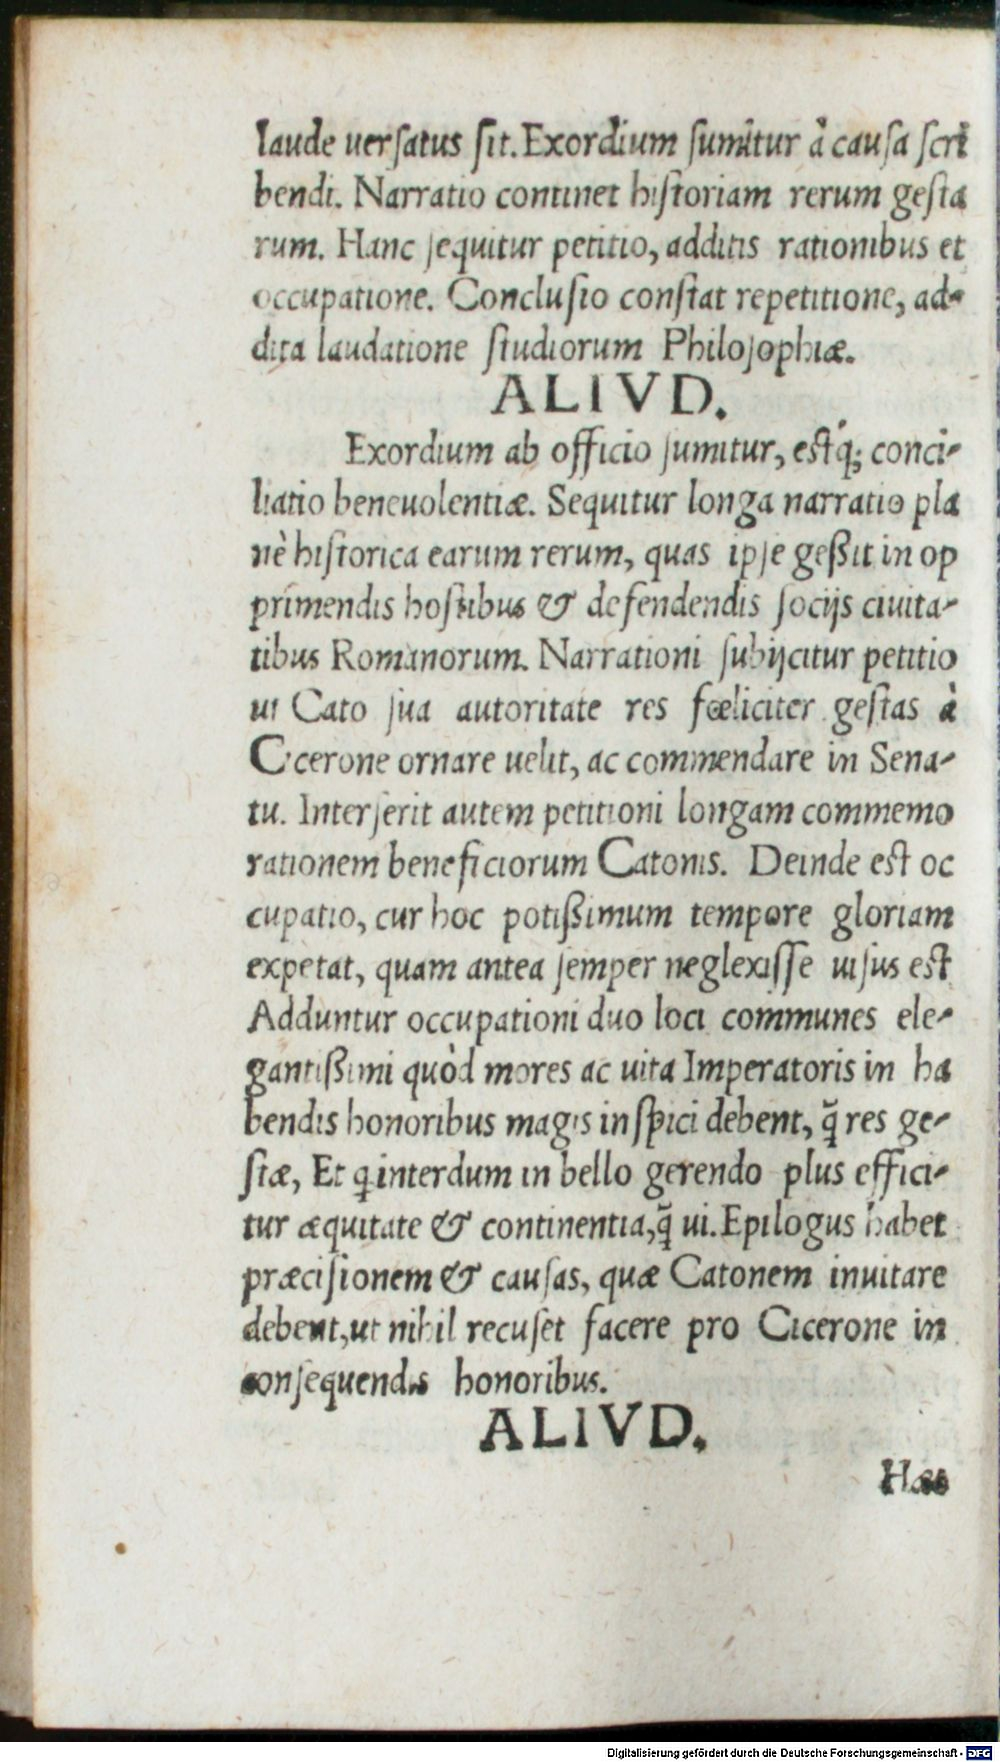 laude uersatus sit. Exordium sumitur à causa scri
bendi. Narratio continet historiam rerum gesta
rum. Hanc sequitur petitio, additis rationibus et
occupatione. Conclusio constat repetitione, ad-
dita laudatione studiorum Philosophiæ.
ALIVD.
Exordium ab officio sumitur, estq́; conci-
liatio beneuolentiæ. Sequitur longa narratio pla
nè historica earum rerum, quas ipse geßit in op
primendis hostibus & defendendis socijs ciuita-
tibus Romanorum. Narrationi subijcitur petitio
ut Cato sua autoritate res fœliciter gestas à
Cicerone ornare uelit, ac commendare in Sena-
tu. Interserit autem petitioni longam commemo
rationem beneficiorum Catonis. Deinde est oc
cupatio, cur hoc potißimum tempore gloriam
expetat, quam antea semper neglexisse uisus est
Adduntur occupationi duo loci communes ele-
gantißimi quòd mores ac uita Imperatoris in ha
bendis honoribus magis inspici debent, q̃ res ge-
stæ, Et ꝙ interdum in bello gerendo plus effici-
tur æquitate & continentia, q̃ ui. Epilogus habet
præcisionem & causas, quæ Catonem inuitare
debent, ut nihil recuset facere pro Cicerone in
consequendis honoribus.
ALIVD.
Digitalisierung gefördert durch die Deutsche Forschungsgemeinschaft - DFG